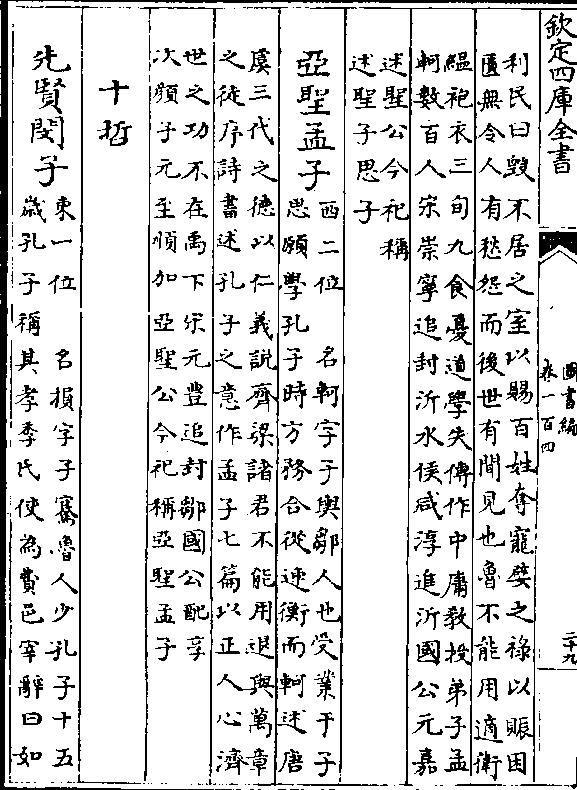 欽定四庫全書
圖書編
卷一百四
二十九
利民曰毀不居之室以賜百姓奪寵嬖之祿以賑困
匱無令人有愁怨而後世有聞見也魯不能用適衛
縕袍衣三旬九食憂道學失傳作中庸教授弟子孟
軻數百人宋崇寧追封沂水侯咸淳進沂國公元嘉
述聖公今祀稱
述聖子思子
亞聖孟子
西二位 名軻字子輿鄒人也受業于子
思願學孔子時方務合從連衡而軻述唐
虞三代之德以仁義說齊梁諸君不能用退與萬章
之徒序詩書述孔子之意作孟子七篇以正人心濟
世之功不在禹下宋元豐追封鄒國公配享
次顏子元至順加亞聖公今祀稱亞聖孟子
十哲
先賢閔子
東一位 名損字子騫魯人少孔子十五
歲孔子稱其孝季氏使為費邑宰辭曰如